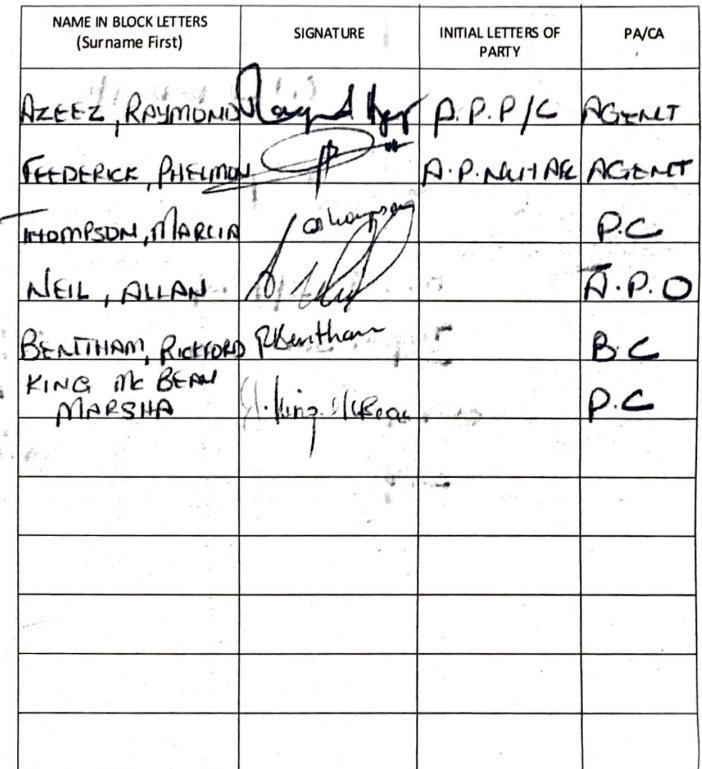 NAME IN BLOCK LETTERS SIGNATURE INITIAL LETTERS OF PA/CA
(Surname First) PARTY
AZEEZ, RAYMOND A.P.P/C AGENT
FEEDERICK, PHELMON A.P. AGENT
THOMPSON, MARCIA Thompson P.C
NEIL, ALLAN A.P.O
BENTHAM, RICKFORD RBentham B.C
KING Mc BEAN
MARSHA M. King-McBean P.C